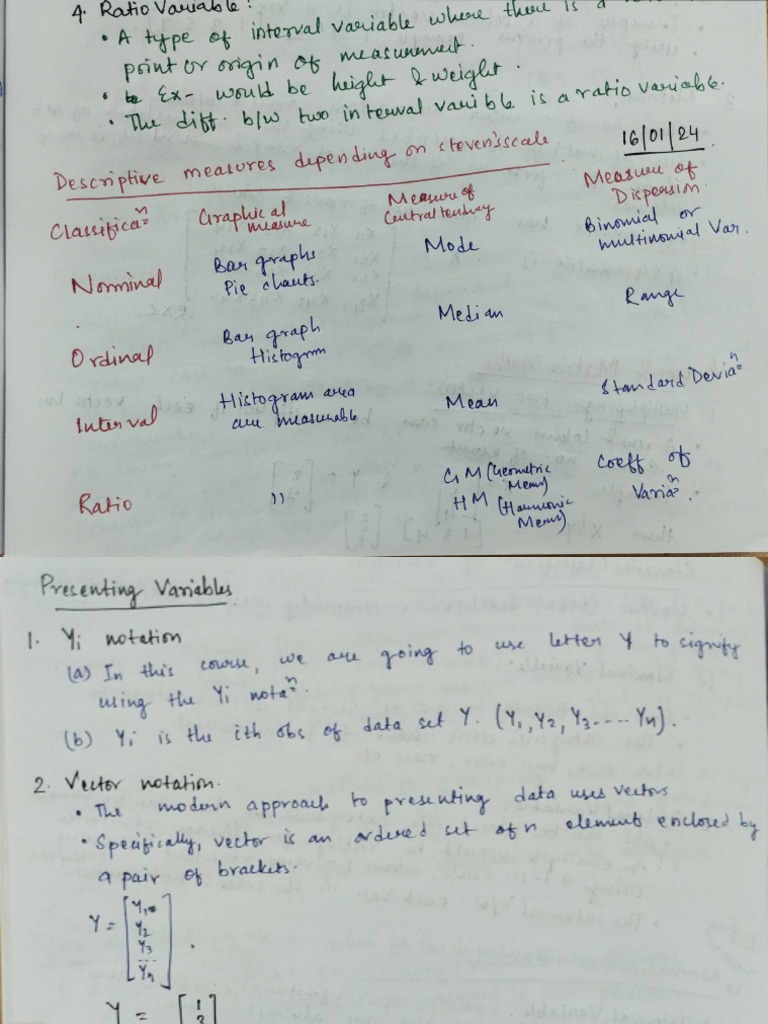 4. Ratio Variable:
• A type of interval variable where there is a
point or origin of measurement.
• Ex- would be height & weight.
• The diff. b/w two interval varible is a ratio variable.
16/01/24
Descriptive measures depending on steven's scale
Classificaⁿ Graphical measure Measure of Central tendency Measure of Dispersion
Norminal Bar graphs Pie charts. Mode Binomial or multinomial Var.
Ordinal Bar graph Histogrm Median Range
Interval Histogram area are measurable Mean Standard Deviaⁿ
Ratio " GM (Geometric Mean) HM (Harmonic Mean) Coeff of Variaⁿ.
Presenting Variables
1. Yi notation
(a) In this course, we are going to use letter Y to signify
using the Yi notaⁿ.
(b) Yi is the ith obs of data set Y. (Y1, Y2, Y3---- Yn).
2. Vector notation.
• The modern approach to presenting data uses vectors
• Specifically, vector is an ordered set of n element enclosed by
a pair of brackets.
Y = [Y1
Y2
Y3
...
Yn]
Y = [1